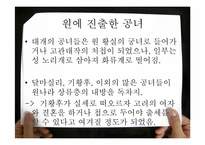 원에 진출한 공녀
• 대개의 공녀들은 원 황실의 궁녀로 들어가
거나 고관대작의 처첩이 되었으나, 일부는
성 노리개로 삼아져 화류계로 떨어짐.
• 달마실리, 기황후, 이외의 많은 공녀들이
원나라 상류층의 내방을 독차지.
-> 기황후가 실세로 떠오르자 고려의 여자
와 결혼을 하거나 첩으로 두어야 출세를
할 수 있다고 여겨질 정도가 되었음.